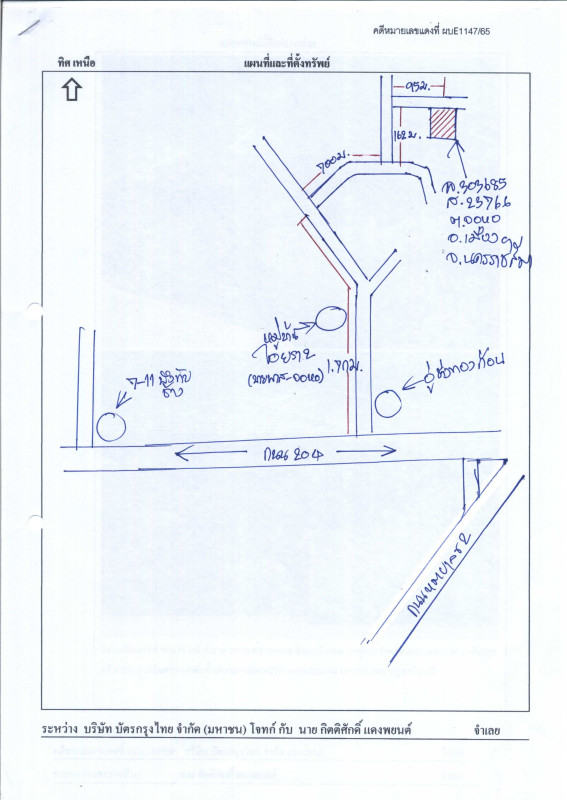 คดีหมายเลขแดงที่ ผบE1147/65
ทิศ เหนือ
แผนที่และที่ตั้งทรัพย์
95ม.
162ม.
700ม.
ฉ.303685
ส.23766
ต.จอหอ
อ.เมือง
จ.นครราชสีมา
หมู่บ้าน
ไอยรา
(มิตรภาพ-จอหอ)
1.7กม.
อู่ช่อทองก้อน
7-11
ถนน 204
ระหว่าง บริษัท บัตรกรุงไทย จำกัด (มหาชน) โจทก์ กับ นาย กิตติศักดิ์ แดงพยนต์ จำเลย